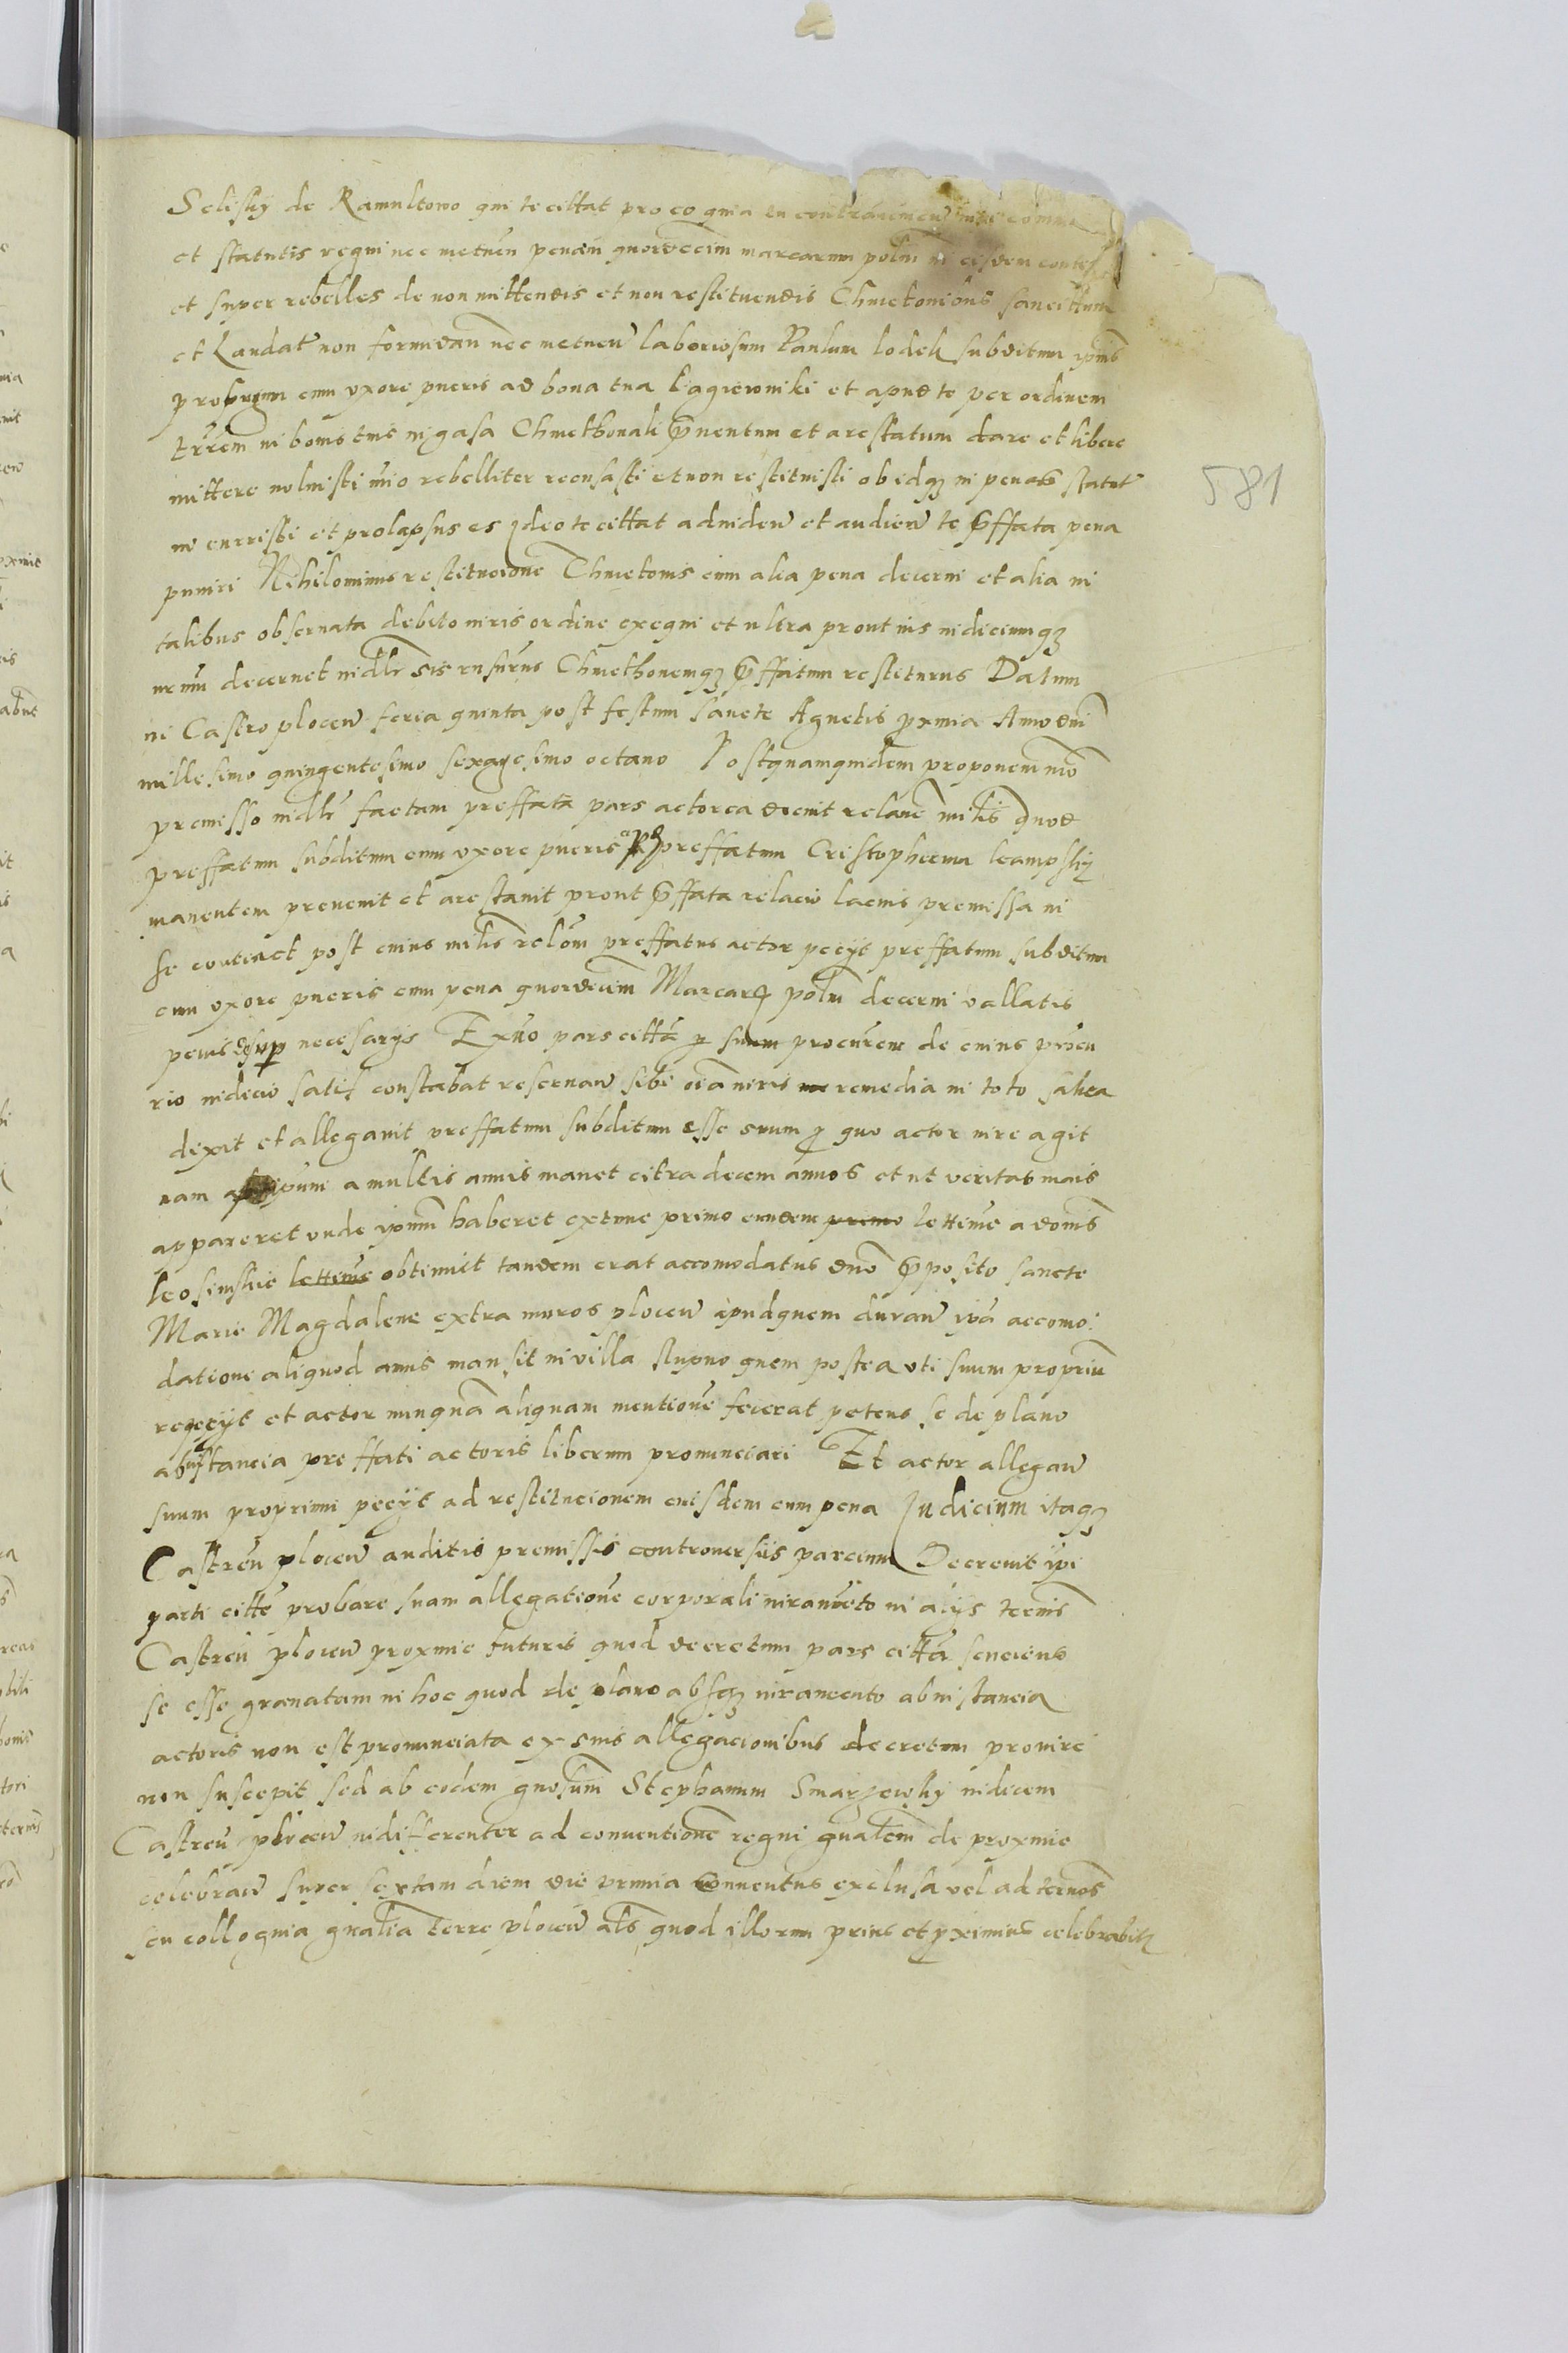 Seliski de Ramultowo qui te cittat pro eo quia tu contraveniens iuri commu
et statutis regni nec metuen penam quordecim marcarum polni in eisdem conte
et super rebelles de non mittendis et non restituendis Chmetonibus sancittum
et Laudat non formidan nec metuen laboriosum Paulum lodek subditum ipsius
proprium cum uxore pueris ad bona tua Lagiewniki et apud te per ordinem
terrem in bonis tuis in casa Chmethonali pventum et arestatum dare et libere
mittere noluisti imo rebelliter recusasti et non restituisti ob idq in penas statut
incurristi et prolapsus es Ideo te cittat ad videndum et audien te pffata pena
puniri Nihilominus restitucione Chmetonis cum alia pena decerni et alia in
talibus observata debito iuris ordine exequi et ultra prout ius iudiciumq
decernet iudlr sis rnsurus Chmethonemq pffatum restiturus Datum
in Castro plocen feria quinta post festum sancte Agnetis pxima Anno dni
millesimo quingentesimo sexagesimo octavo Postquamquidem proponem mo
premisso iudlr factam preffata pars actorea docuit relacne mlis Quod
preffatum subditum cum uxore pueris apd preffatum Cristopherum leampsky
manentem prevenit et arestavit prout pffata relacio lacius premissa in
se continet post cuius mlis relom preffatus actor peciit preffatum subditum
cum uxore pueris cum pena quordecim Marcar polni decerni vallatis
penis desup necesariis Ex vo pars citta p suum procurem de cuius procu
rio iudicio satis constabat reservan sibi oia iuris remedia in toto salva
dixit et allegavit preffatum subditum esse suum p quo actor iure agit
nam ipum a multis annis manet citra decem annos et ut veritas mais
appareret unde ipsum haberet extunc primo eundem primo lettime a donis
leosinskie lettime obtinuit tandem erat accomodatus dno pposito sancte
Marie Magdalene extra muros plocen apudquem duran ipa accomo
datione aliquod annis mansit in villa Rupno quem postea uti suum proprium
repeciit et actor nunqua aliquam mentione fecerat petens se de plano
ab instancia preffati actoris liberum pronunciari Et actor allegan
suum proprium peciit ad restitucionem eiusdem cum pena Iudicium itaq
Castren plocen auditis premissis controversiis parcium Decrevit ipi
parti citte probare suam allegatione corporali iuramento in aliis termis
Castren plocen proxime futuris quod decretum pars citta senciens
se esse gravatam in hoc quod de plano absq iuramento ab instancia
actoris non est pronunciata ex suis allegacionibus decretum pro iure
non suscepit sed ab eodem gnosum Stephanum Smarzewsky iudicem
Castren plocen indifferenter ad conventione regni gnalem de proxime
celebran super sextam diem die prima conventus exclusa vel ad termos
seu colloquia gnalia terre plocen als quod illorum prius et pximius celebrabitr
581